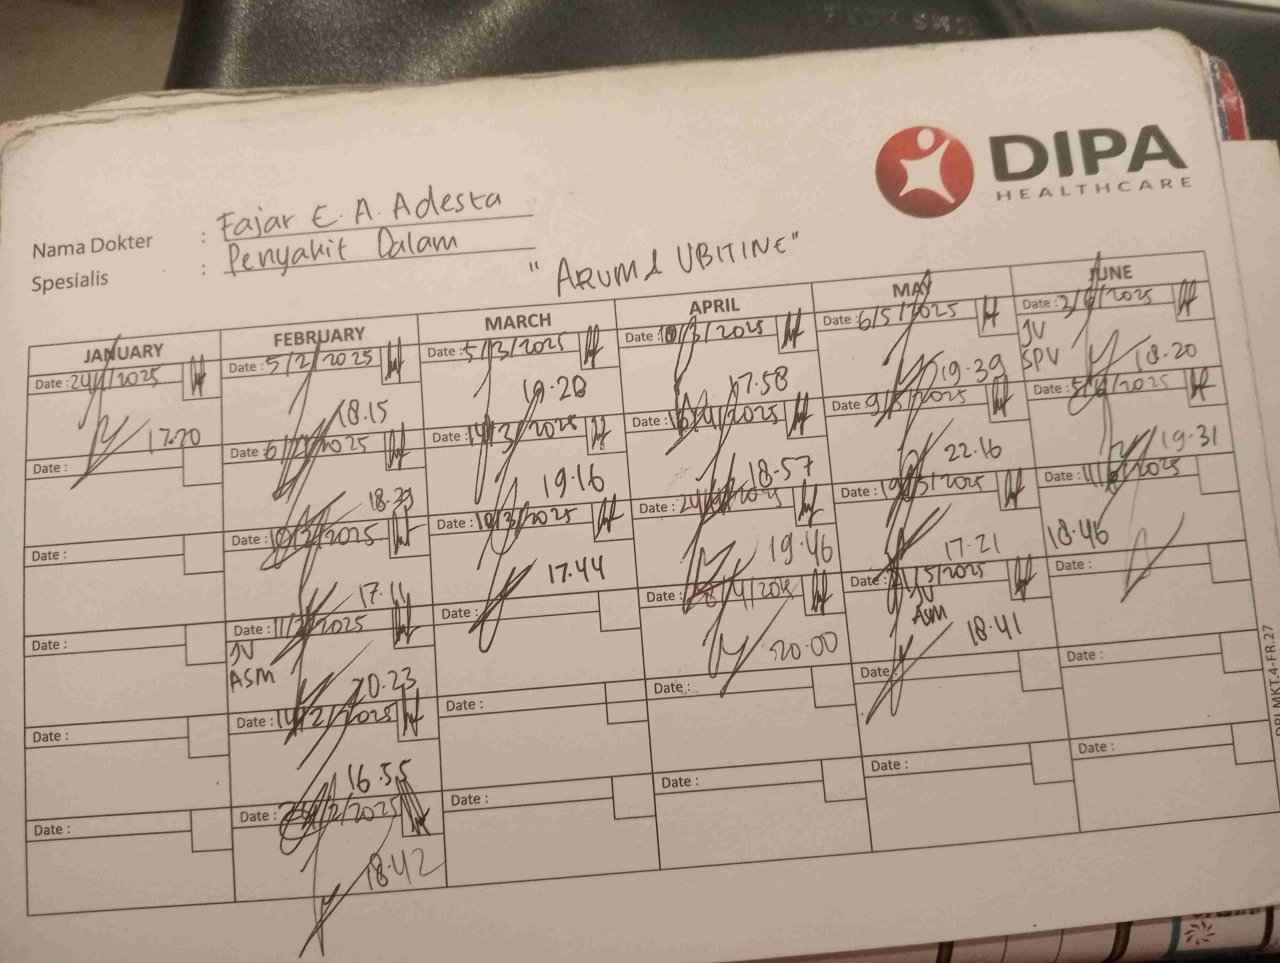 DIPA
HEALTHCARE
Nama Dokter : Fajar E. A. Adesta
Spesialis : Penyakit Dalam
"ARUMI UBITINE"
JANUARY
Date : 24/1/2025
17.20
Date :
Date :
Date :
Date :
Date :
FEBRUARY
Date : 5/2/2025
18.15
Date : 6/2/2025
18.39
Date : 10/2/2025
17.11
Date : 11/2/2025
JV
ASM
20.23
Date : 14/2/2025
16.55
Date : 24/2/2025
18.42
MARCH
Date : 5/3/2025
19.28
Date : 14/3/2025
19.16
Date : 19/3/2025
17.44
Date :
Date :
Date :
APRIL
Date : 10/3/2025
17.58
Date : 16/4/2025
18.57
Date : 24/4/2025
19.46
Date : /4/2025
20.00
Date :
Date :
MAY
Date : 6/5/2025
19.39
Date : 9/5/2025
22.16
Date : 19/5/2025
17.21
Date : /5/2025
JV
ASM
18.41
Date :
Date :
JUNE
Date : 2/6/2025
JV
SPV
18.20
Date : 5/6/2025
19.31
Date : 11/6/2025
18.46
Date :
Date :
Date :
MKT-4-FR.27